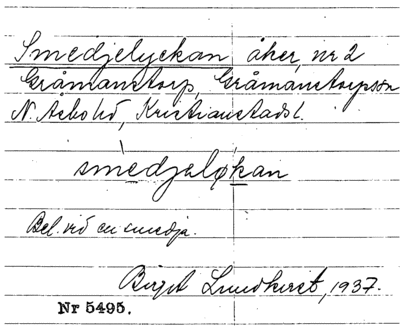 Smedjelyckan åker, nr 2
Gråmanstorp, Gråmanstorpssn
N. Asbo hd, Kristianstads l.
smedjeløkan
Bel. vid en smedja.
Birgit Lundkvist, 1937.
Nr 5495.